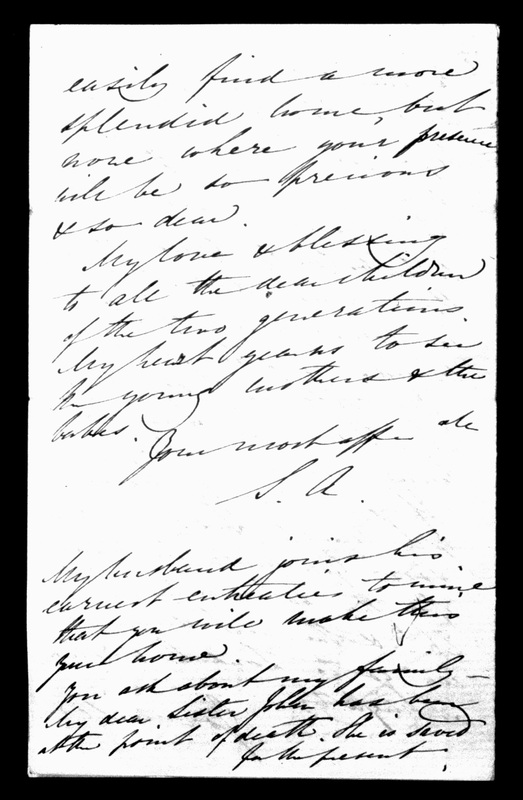 easily find a more
splendid home, but
none where your presence
will be so precious
& so dear.
My love & blessing
to all the dear children
of the two generations.
My heart yearns to see
the young mothers & the
babes.
Your most affec ate
S. A.
My husband joins his
earnest entreaties to mine
that you will make this
your home.
You ask about my family –
My dear Sister John has been
at the point of death. She is saved
for the present.